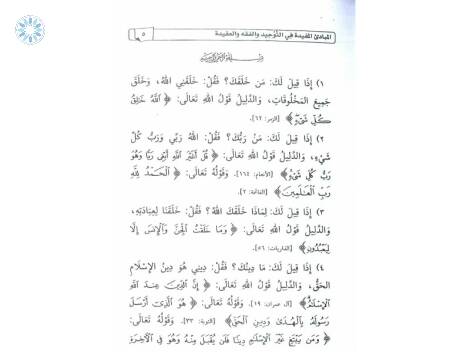 المبادئ المفيدة في التوحيد والفقه والعقيدة
٥
١) إِذَا قِيلَ لَكَ: مَن خَلَقَكَ؟ فَقُلْ: خَلَقَنِي اللهُ، وَخَلَقَ
جَمِيعَ المَخْلُوقَاتِ، وَالدَّلِيلُ قَوْلُ اللهِ تَعَالَى: ﴿ ٱللَّهُ خَٰلِقُ
كُلِّ شَىْءٍ ﴾ [الزمر: ٦٢].
٢) إِذَا قِيلَ لَكَ: مَنْ رَبُّكَ؟ فَقُلْ: اللهُ رَبِّي وَرَبُّ كُلِّ
شَيْءٍ، وَالدَّلِيلُ قَوْلُ اللهِ تَعَالَى: ﴿ قُلْ أَغَيْرَ ٱللَّهِ أَبْغِى رَبًّا وَهُوَ
رَبُّ كُلِّ شَىْءٍ ﴾ [الأنعام: ١٦٤]. وَقَوْلُهُ تَعَالَى: ﴿ ٱلْحَمْدُ لِلَّهِ
رَبِّ ٱلْعَٰلَمِينَ ﴾ [الفاتحة: ٢].
٣) إِذَا قِيلَ لَكَ: لِمَاذَا خَلَقَكَ اللهُ؟ فَقُلْ: خَلَقَنَا لِعِبَادَتِهِ،
وَالدَّلِيلُ قَوْلُ اللهِ تَعَالَى: ﴿ وَمَا خَلَقْتُ ٱلْجِنَّ وَٱلْإِنسَ إِلَّا
لِيَعْبُدُونِ ﴾ [الذاريات: ٥٦].
٤) إِذَا قِيلَ لَكَ: مَا دِينُكَ؟ فَقُلْ: دِينِي هُوَ دِينُ الإِسْلَامِ
الحَقُّ، وَالدَّلِيلُ قَوْلُ اللهِ تَعَالَى: ﴿ إِنَّ ٱلدِّينَ عِندَ ٱللَّهِ
ٱلْإِسْلَٰمُ ﴾ [آل عمران: ١٩]. وَقَوْلُهُ تَعَالَى: ﴿ هُوَ ٱلَّذِىٓ أَرْسَلَ
رَسُولَهُۥ بِٱلْهُدَىٰ وَدِينِ ٱلْحَقِّ ﴾ [التوبة: ٣٣]. وَقَوْلُهُ تَعَالَى:
﴿ وَمَن يَبْتَغِ غَيْرَ ٱلْإِسْلَٰمِ دِينًا فَلَن يُقْبَلَ مِنْهُ وَهُوَ فِى ٱلْءَاخِرَةِ